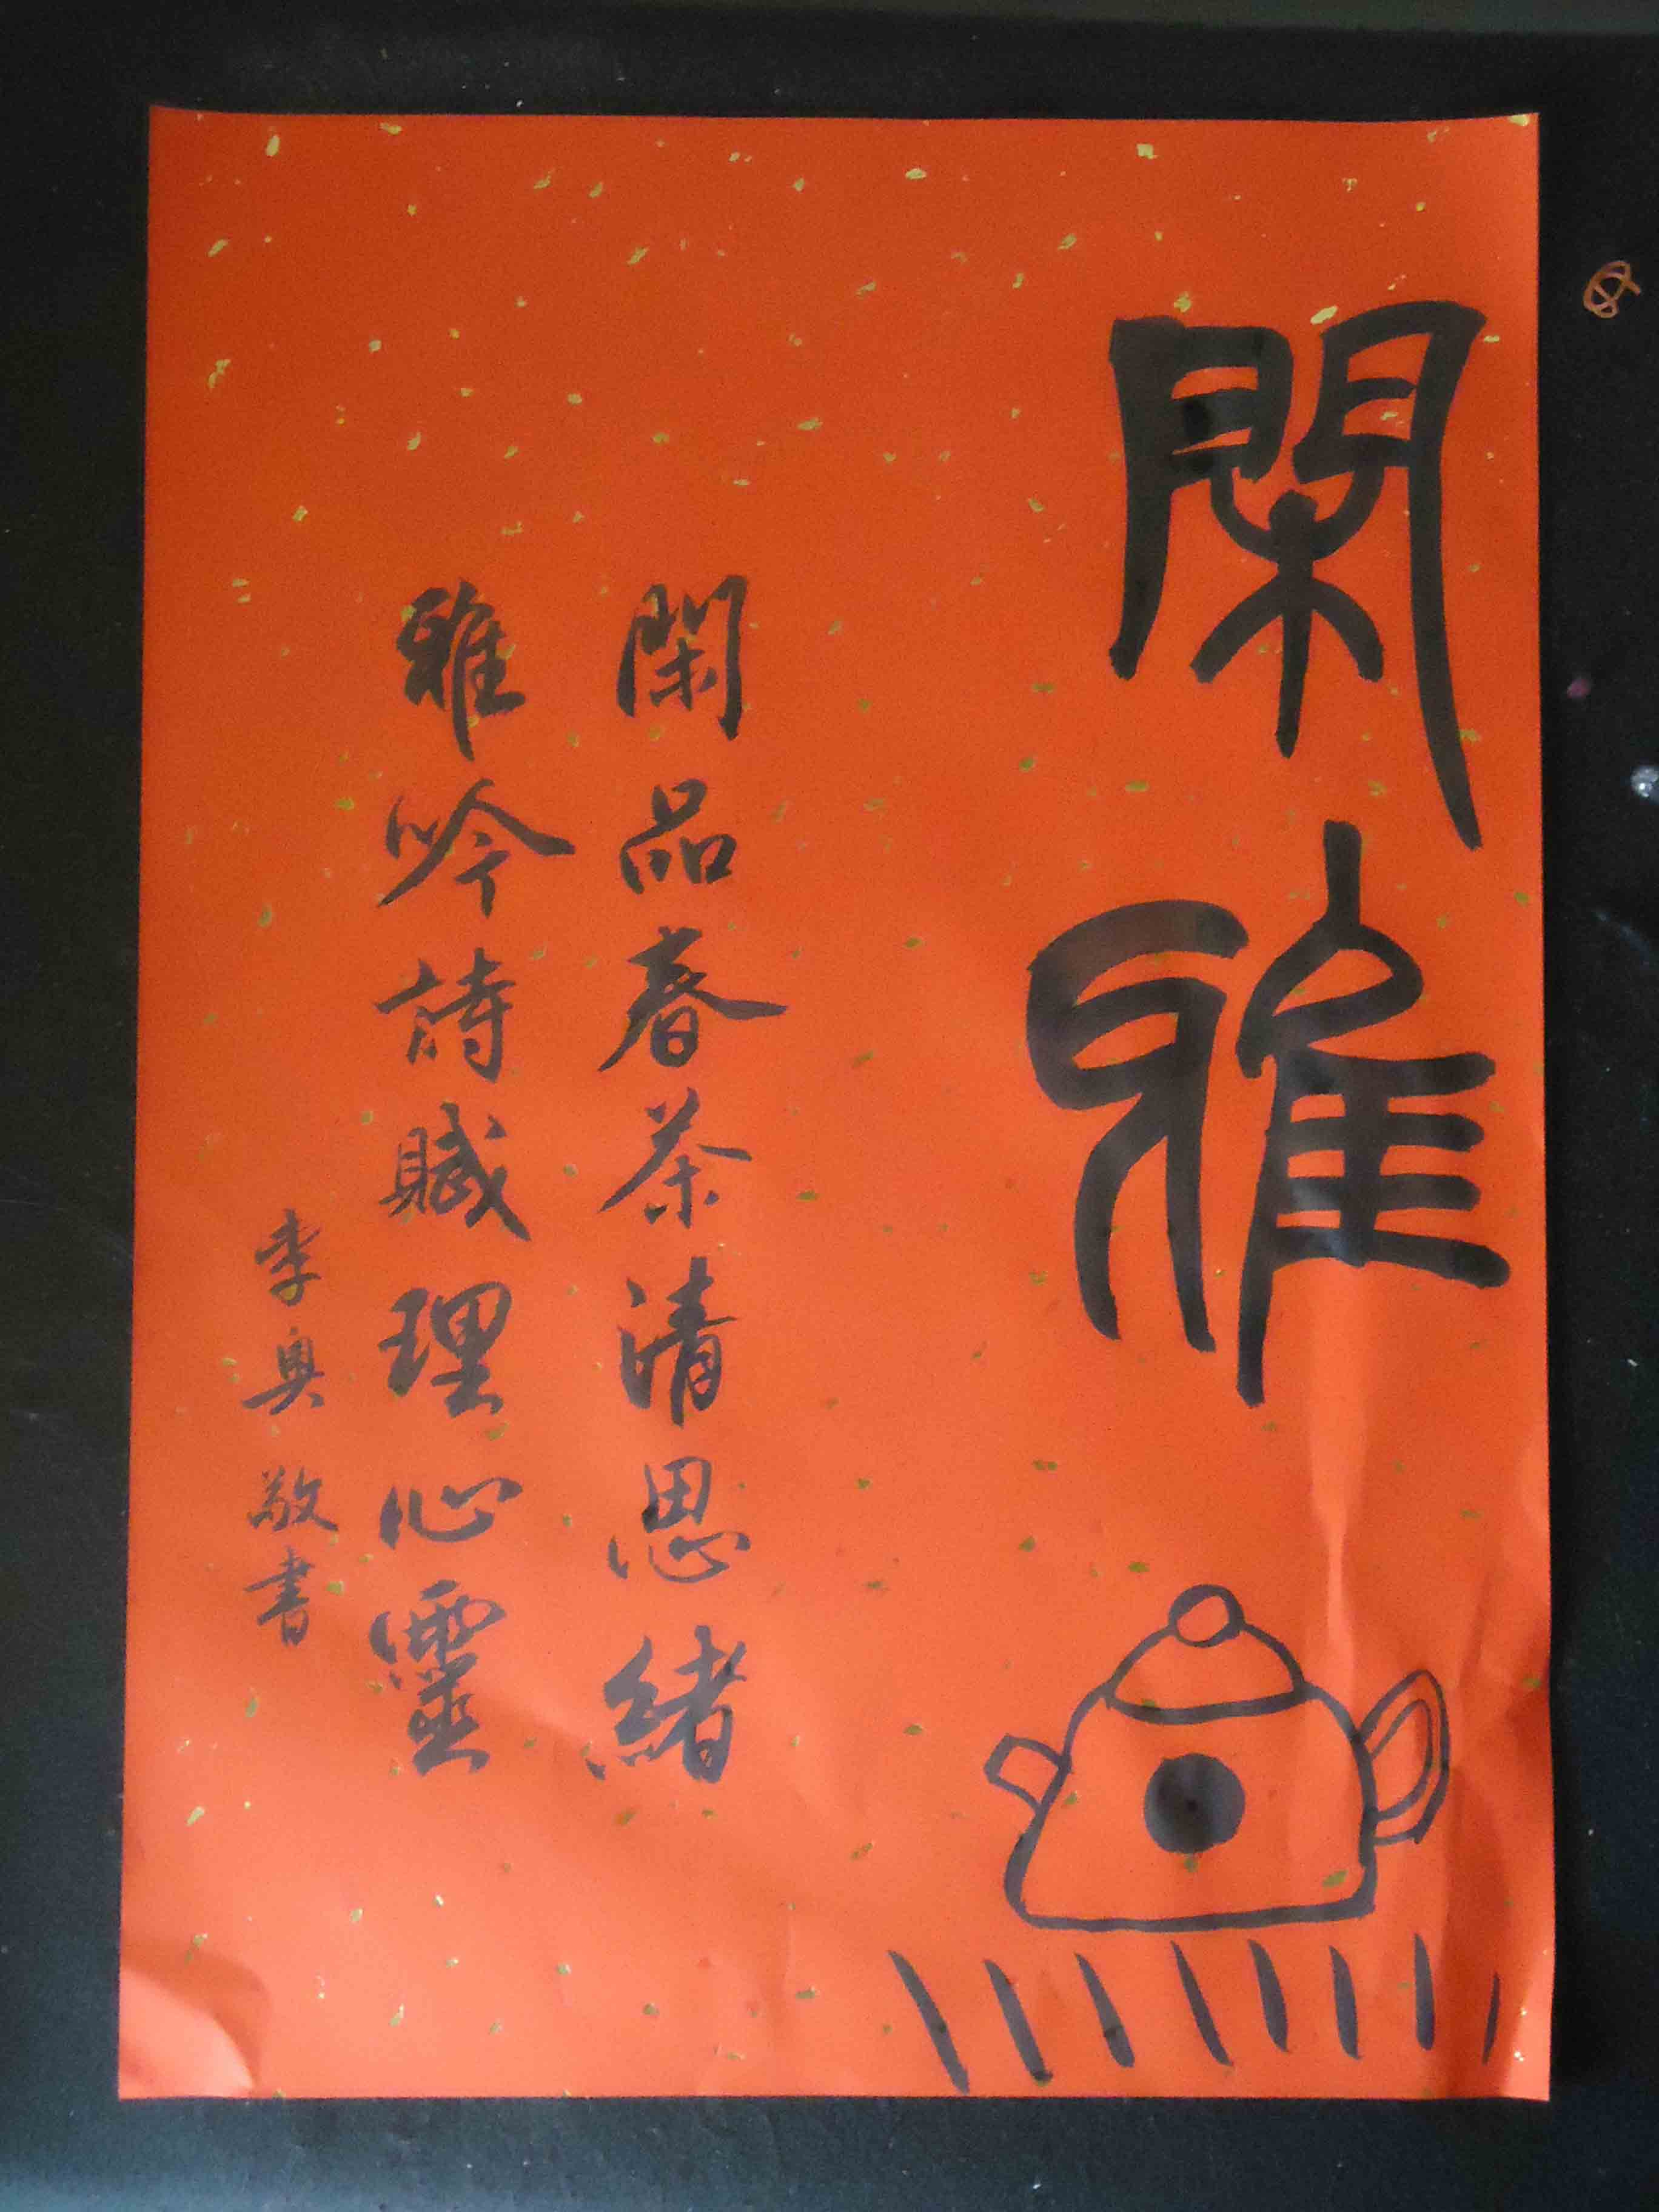 閑雅
閑品春茶清思緒
雅吟詩賦理心靈
李奥敬書